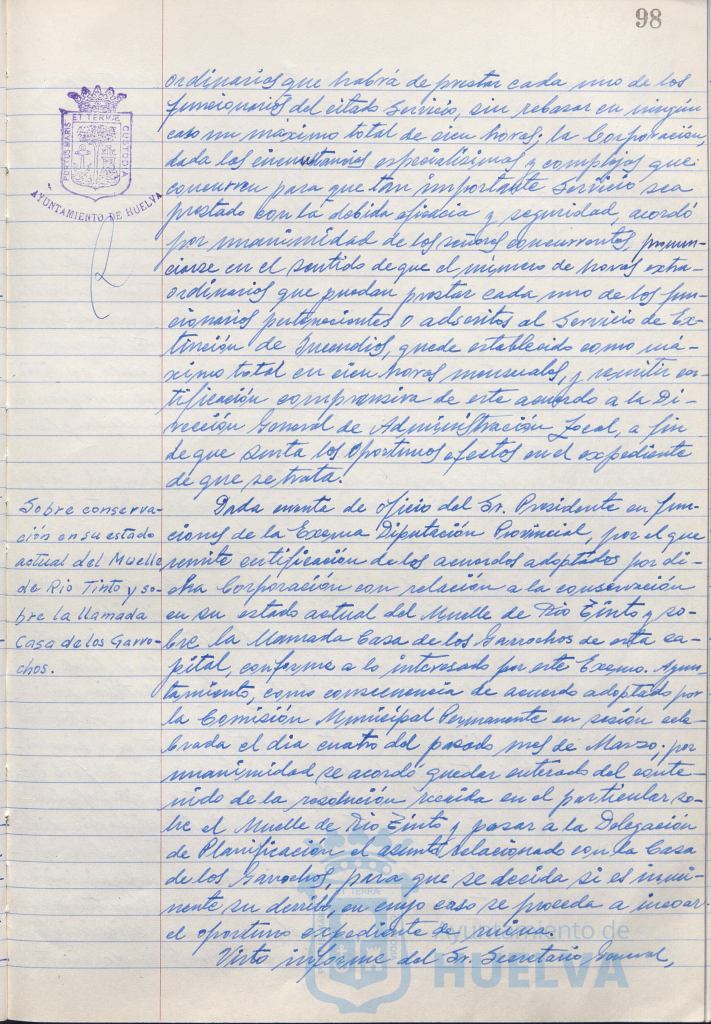 98
ordinarios que habrá de prestar cada uno de los
funcionarios del citado Servicio, sin rebasar en ningún
caso un máximo total de cien horas; la Corporación,
dada las circunstancias especialísimas y complejas que
concurren para que tan importante Servicio sea
prestado con la debida eficacia y seguridad, acordó
por unanimidad de los señores concurrentes, pronun-
ciarse en el sentido de que el número de horas extra-
ordinarias que puedan prestar cada uno de los fun-
cionarios pertenecientes o adscritos al Servicio de Ex-
tinción de Incendios, quede establecido como má-
ximo total en cien horas mensuales, y remitir cer-
tificación comprensiva de este acuerdo a la Di-
rección General de Administración Local, a fin
de que surta los oportunos efectos en el expediente
de que se trata.
ET TERRÆ
PORTUS MARIS
CUSTODIA
AYUNTAMIENTO DE HUELVA
Sobre conserva-
ción en su estado
actual del Muelle
de Rio Tinto y so-
bre la llamada
Casa de los Garro-
chos.
Dada cuenta de oficio del Sr. Presidente en fun-
ciones de la Excma Diputación Provincial, por el que
remite certificación de los acuerdos adoptados por di-
cha Corporación con relación a la conservación
en su estado actual del Muelle de Rio Tinto y so-
bre la llamada Casa de los Garrochos de esta ca-
pital, conforme a lo interesado por este Excmo. Ayun-
tamiento, como consecuencia de acuerdo adoptado por
la Comisión Municipal Permanente en sesión cele-
brada el dia cuatro del pasado mes de Marzo; por
unanimidad se acordó quedar enterado del conte-
nido de la resolución recaida en el particular so-
bre el Muelle de Rio Tinto y pasar a la Delegación
de Planificación el asunto relacionado con la Casa
de los Garrochos, para que se decida si es inmi-
nente su derribo, en cuyo caso se proceda a incoar
el oportuno expediente de ruina.
Visto informe del Sr. Secretario General,
Ayuntamiento de
HUELVA